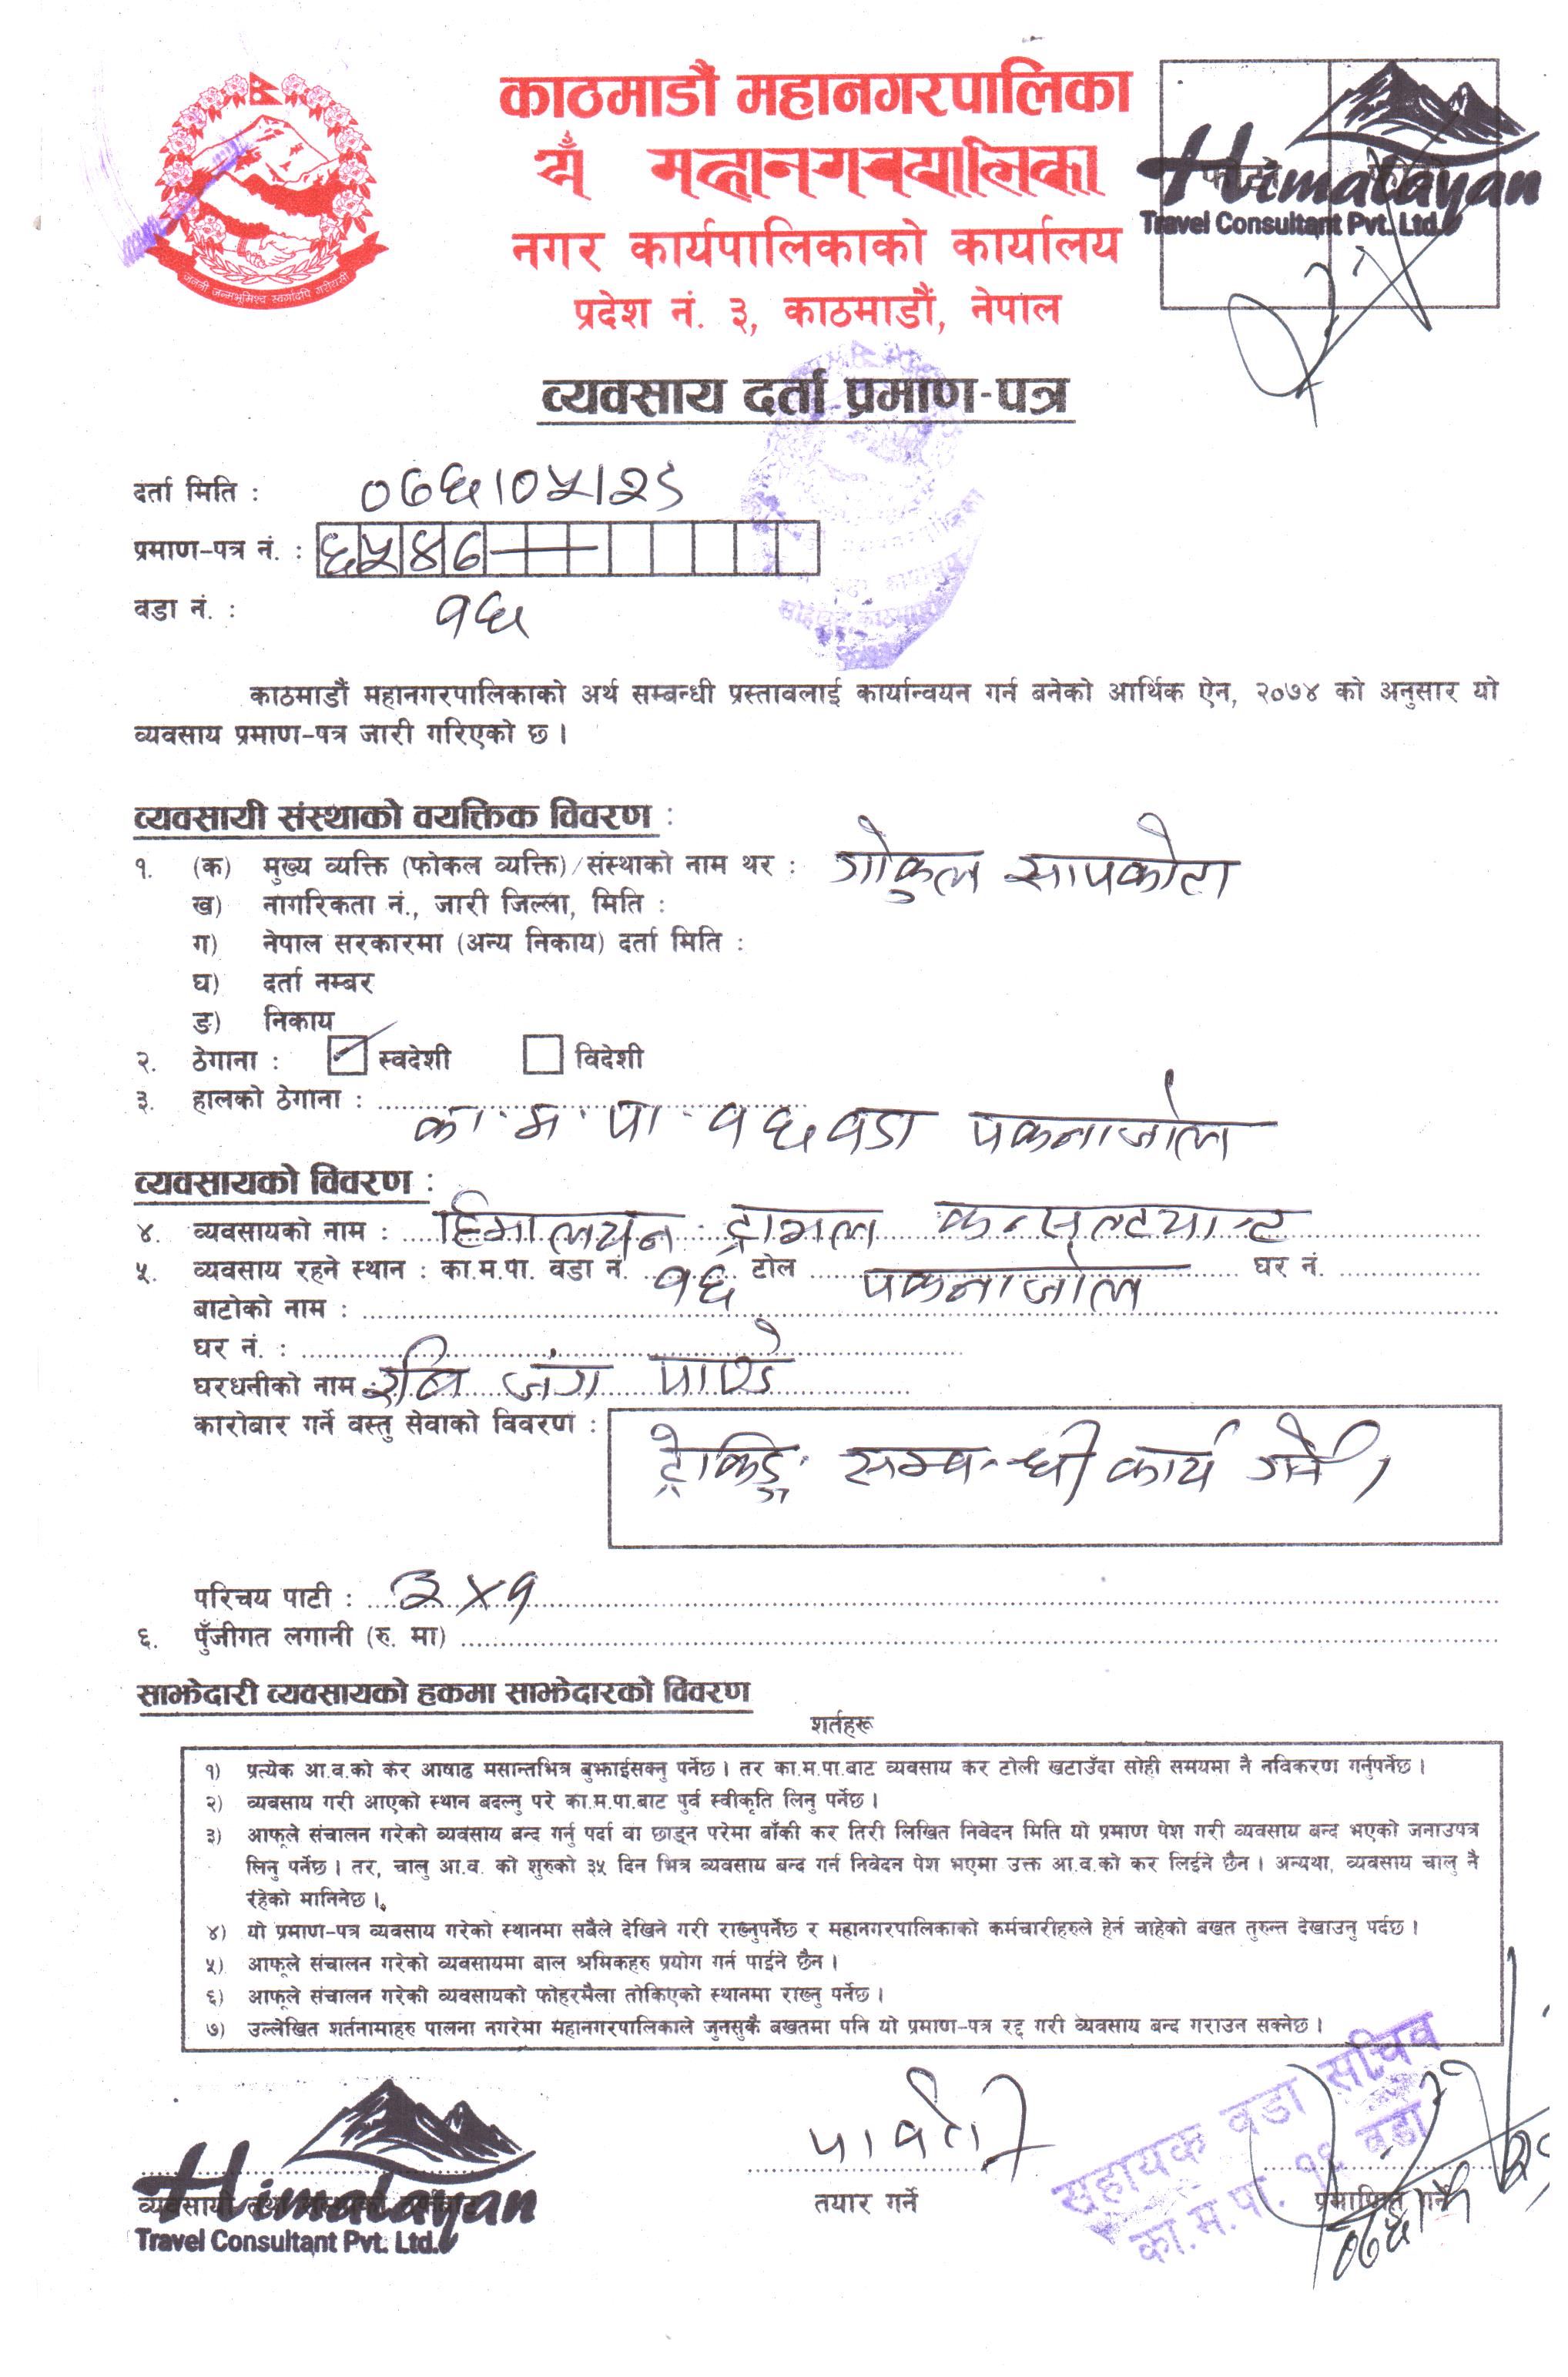 काठमाडौं महानगरपालिका
नगर कार्यपालिकाको कार्यालय
प्रदेश नं. ३, काठमाडौं, नेपाल
जननी जन्मभूमिश्च स्वर्गादपि गरीयसी
Himalayan
Travel Consultant Pvt. Ltd.
व्यवसाय दर्ता प्रमाण-पत्र
दर्ता मिति : ०७६।०५।२९
प्रमाण-पत्र नं. : ६५४७
वडा नं. : १६
काठमाडौं महानगरपालिकाको अर्थ सम्बन्धी प्रस्तावलाई कार्यान्वयन गर्न बनेको आर्थिक ऐन, २०७४ को अनुसार यो
व्यवसाय प्रमाण-पत्र जारी गरिएको छ ।
व्यवसायी संस्थाको वयक्तिक विवरण :
१. (क) मुख्य व्यक्ति (फोकल व्यक्ति)/संस्थाको नाम थर : गोकुल सापकोटा
ख) नागरिकता नं., जारी जिल्ला, मिति :
ग) नेपाल सरकारमा (अन्य निकाय) दर्ता मिति :
घ) दर्ता नम्बर
ङ) निकाय
२. ठेगाना : स्वदेशी विदेशी
३. हालको ठेगाना : का. म. पा. १६ वडा पकनाजोल
व्यवसायको विवरण :
४. व्यवसायको नाम : हिमालयन ट्राभल कन्सल्टयान्ट
५. व्यवसाय रहने स्थान : का.म.पा. वडा नं. १६ टोल पकनाजोल घर नं.
बाटोको नाम :
घर नं. :
घरधनीको नाम : रबि जंग पाण्डे
कारोवार गर्ने वस्तु सेवाको विवरण : ट्रेकिङ्ग सम्बन्धी कार्य गर्ने ।
परिचय पाटी : ३ x १
६. पुँजीगत लगानी (रु. मा)
साझेदारी व्यवसायको हकमा साझेदारको विवरण
शर्तहरू
१) प्रत्येक आ.व.को कर आषाढ मसान्तभित्र बुझाईसक्नु पर्नेछ । तर का.म.पा.बाट व्यवसाय कर टोली खटाउँदा सोही समयमा नै नविकरण गर्नुपर्नेछ ।
२) व्यवसाय गरी आएको स्थान बदल्नु परे का.म.पा.बाट पुर्व स्वीकृति लिनु पर्नेछ ।
३) आफूले संचालन गरेको व्यवसाय बन्द गर्नु पर्दा वा छाड्न परेमा बाँकी कर तिरी लिखित निवेदन मिति यो प्रमाण पेश गरी व्यवसाय बन्द भएको जनाउपत्र
लिनु पर्नेछ । तर, चालु आ.व. को शुरुको ३५ दिन भित्र व्यवसाय बन्द गर्न निवेदन पेश भएमा उक्त आ.व.को कर लिईने छैन । अन्यथा, व्यवसाय चालु नै
रहेको मानिनेछ ।
४) यो प्रमाण-पत्र व्यवसाय गरेको स्थानमा सबैले देखिने गरी राख्नुपर्नेछ र महानगरपालिकाको कर्मचारीहरुले हेर्न चाहेको बखत तुरुन्त देखाउनु पर्दछ ।
५) आफूले संचालन गरेको व्यवसायमा बाल श्रमिकहरु प्रयोग गर्न पाईने छैन ।
६) आफूले संचालन गरेको व्यवसायको फोहरमैला तोकिएको स्थानमा राख्नु पर्नेछ ।
७) उल्लेखित शर्तनामाहरु पालना नगरेमा महानगरपालिकाले जुनसुकै बखतमा पनि यो प्रमाण-पत्र रद्द गरी व्यवसाय बन्द गराउन सक्नेछ ।
Himalayan
Travel Consultant Pvt. Ltd.
पार्वती
तयार गर्ने
सहायक वडा सचिव
का.म.पा. १६ वडा
प्रमाणित गर्ने